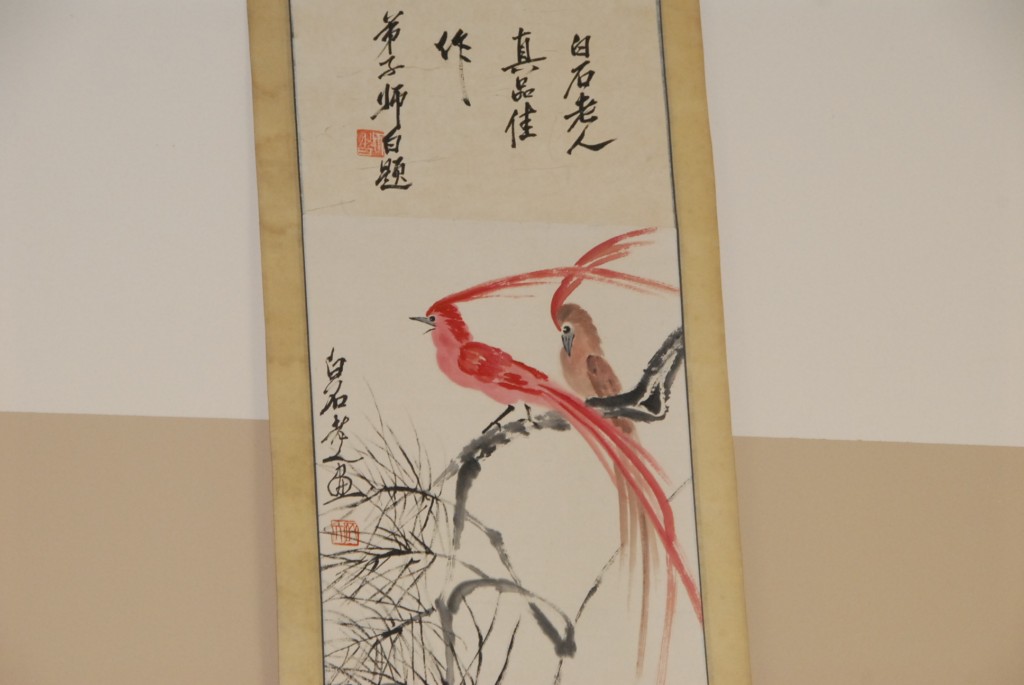 白石老人
真品佳
作
弟子师白题
白石老人画